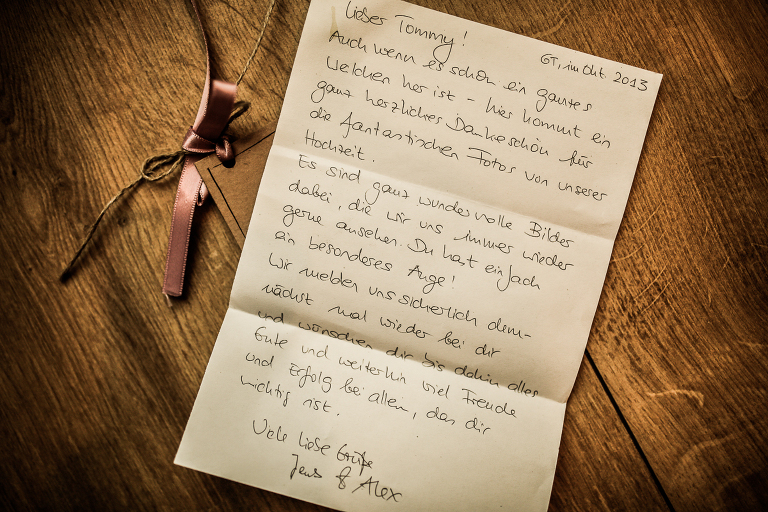 Lieber Tommy!
GT, im Okt. 2013
Auch wenn es schon ein ganzes
Weilchen her ist - hier kommt ein
ganz herzliches Dankeschön für
die fantastischen Fotos von unserer
Hochzeit.
Es sind ganz wundervolle Bilder
dabei, die wir uns immer wieder
gerne ansehen. Du hast einfach
ein besonderes Auge!
Wir melden uns sicherlich dem-
nächst mal wieder bei dir
und wünschen dir bis dahin alles
Gute und weiterhin viel Freude
und Erfolg bei allem, das dir
wichtig ist.
Viele liebe Grüße
Jens & Alex